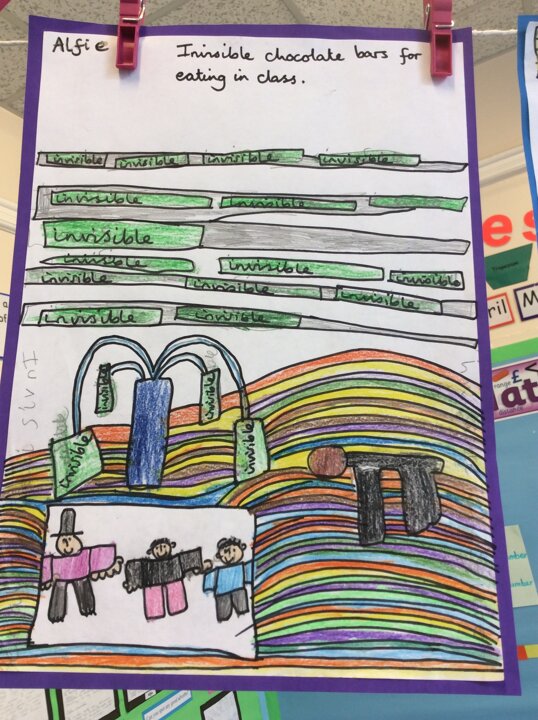 Alfie Invisible chocolate bars for
eating in class.
invisible invisible invisible invisible
invisible invisible
invisible
invisible invisible invisible
invisible invisible invisible
invisible invisible
invisible invisible
invisible invisible
es
ril M
range £
at
number
number